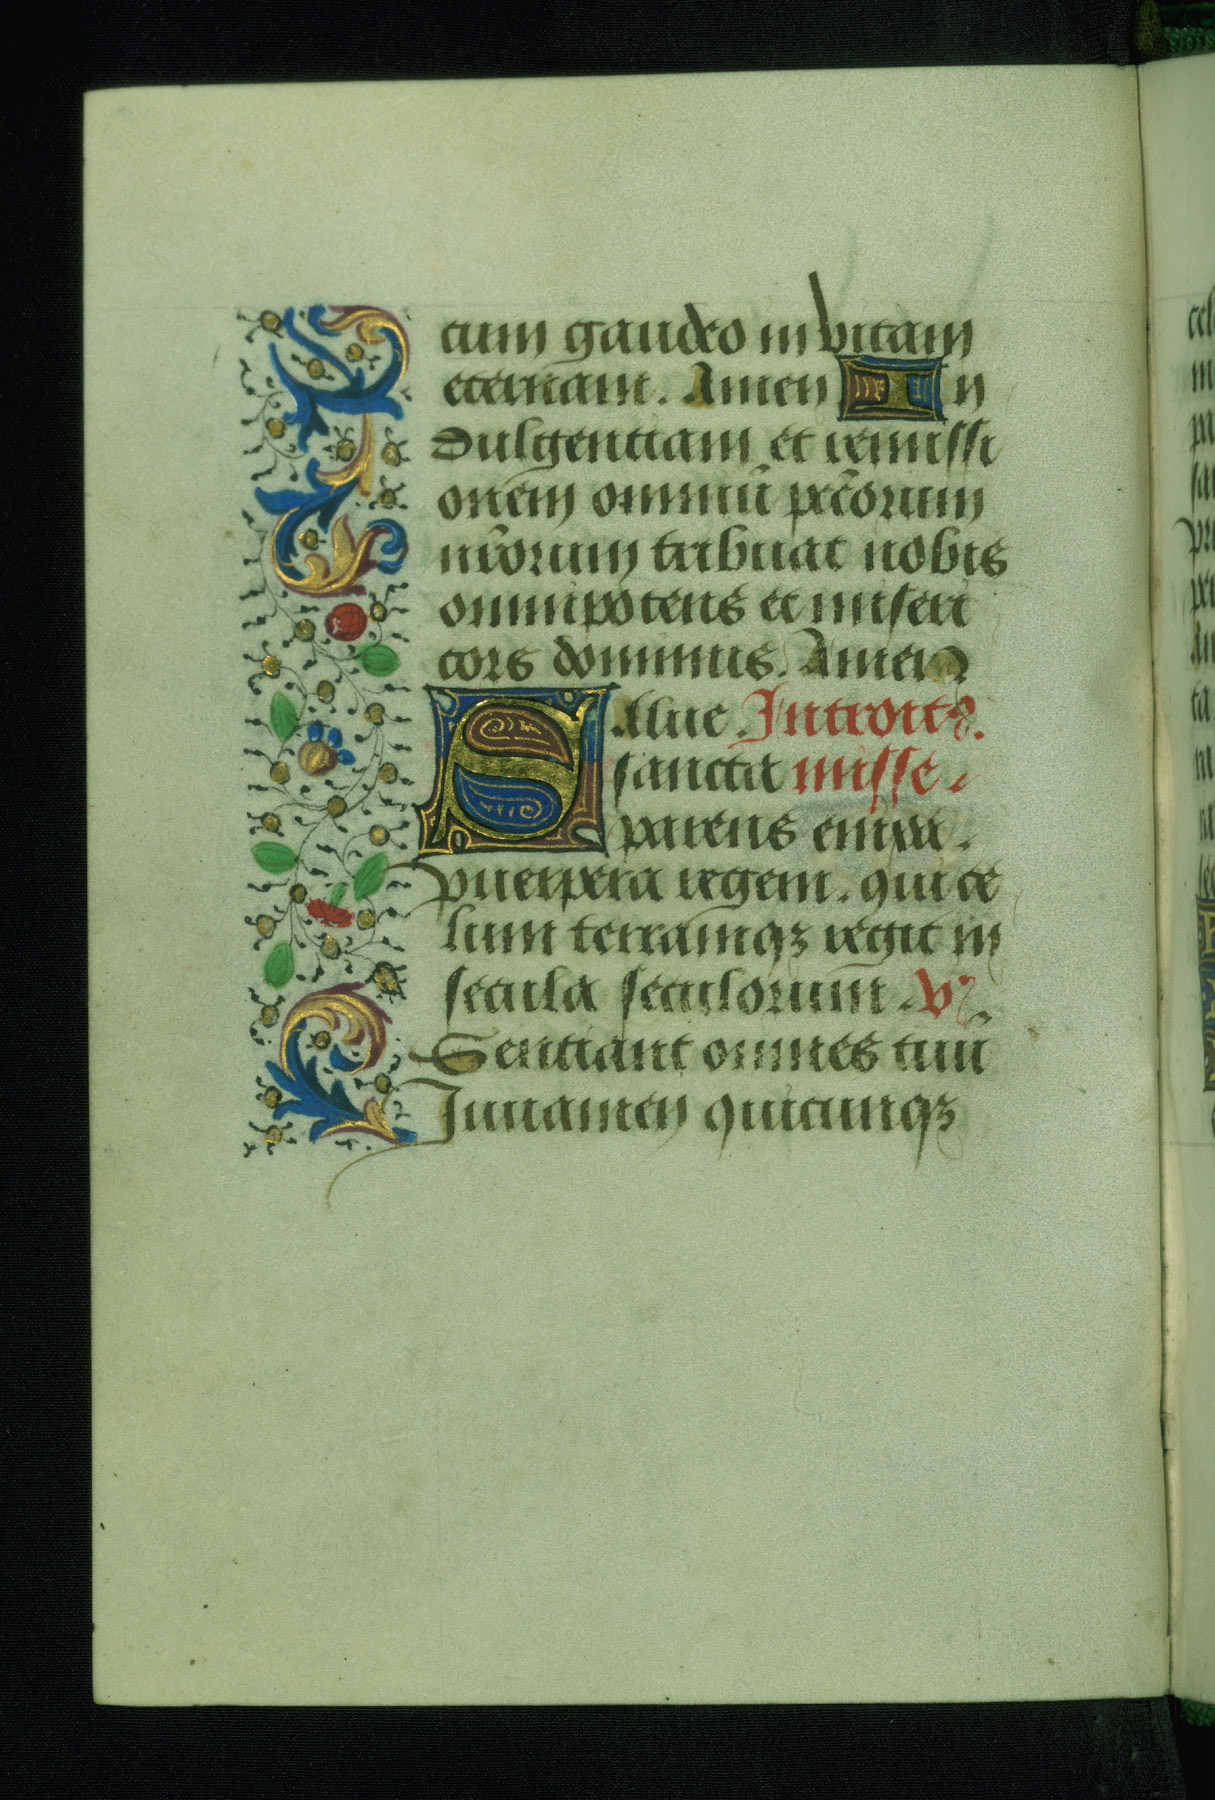 cum gaudeo in vitam
eternam. Amen In
dulgentiam et remissi
onem omniū pccōrum
nr̄orum tribuat nobis
omnipotens et miseri
cors dominus. Amen
Salue Introitꝰ.
sancta misse.
parens enixa.
puerpera regem. qui ce
lum terramqꝫ regit in
secula seculorum. V
Sentiant omnes tuū
Iuuamen quicunqꝫ